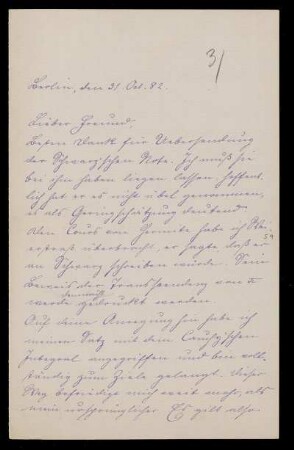 3)
Berlin, den 31 Oct. 82.
Lieber Freund.
Besten Dank für Uebersendung
der Schwarz'schen Note. Ich muß sie
bei ihm haben liegen lassen. Hoffent-
lich hat er es nicht übel genommen,
u. als Geringschätzung deutend.
Den Cours von Hermite habe ich Wei-
erstraß überbracht, er sagte daß er
an Schwarz schreiben würde. Sein
Beweis der Transcendenz von π
werde demnächst gedruckt werden.
Auf deine Anregung hin habe ich
meinen Satz mit dem Cauchy'schen
Integral angegriffen und bin voll-
ständig zum Ziele gelangt. Dieser
Weg befriedigt mich weit mehr, als
mein ursprünglicher. Es gilt also